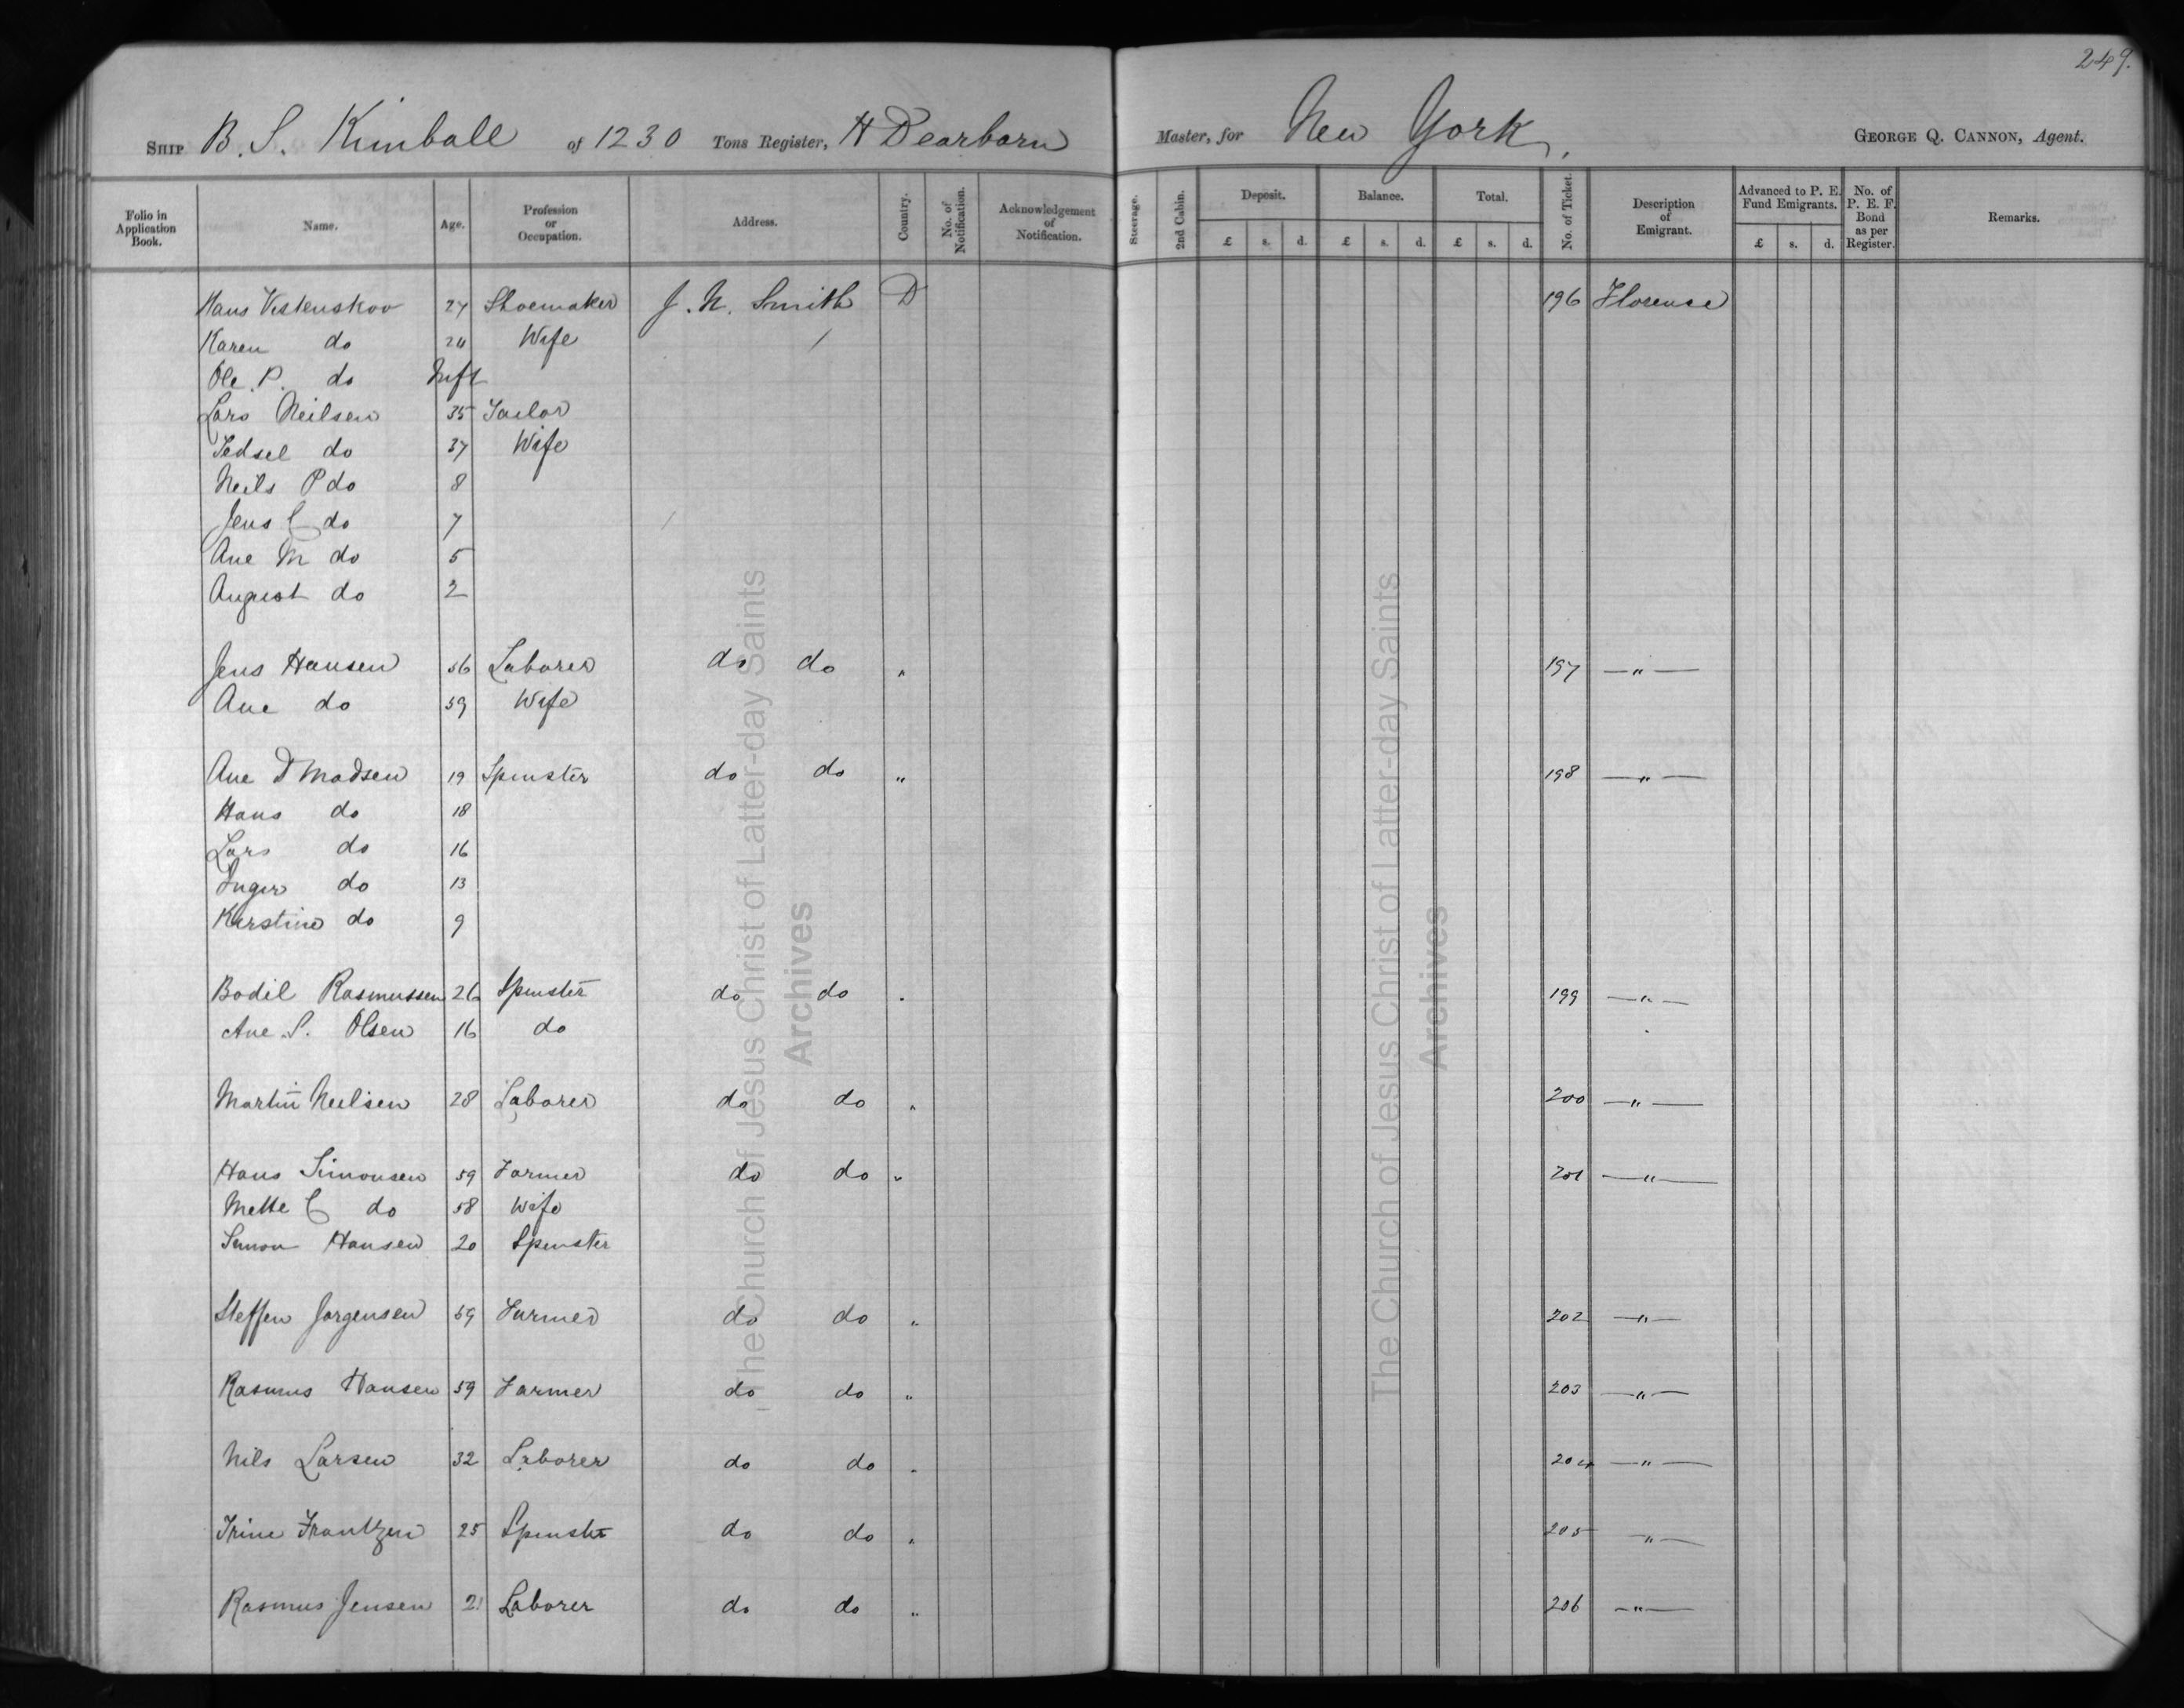 249.
SHIP B. S. Kimball of 1230 Tons Register, H Dearborn Master, for New York, GEORGE Q. CANNON, Agent.
Folio in Application Book. Name. Age. Profession or Occupation. Address. Country. No. of Notification. Acknowledgement of Notification. Steerage. 2nd Cabin. Deposit. £ s. d. Balance. £ s. d. Total. £ s. d. No. of Ticket. Description of Emigrant. Advanced to P. E. Fund Emigrants. £ s. d. No. of P. E. F. Bond as per Register. Remarks.
Hans Vestenskov 27 Shoemaker J. N. Smith D 196 Florence
Karen do Wife
Ole. P. do Inft
Lars Neilsen 35 Tailor
Sedsel do 37 Wife
Neils P do 8
Jens C do 7
Ane M do 5
August do 2
Jens Hansen 56 Laborer do do " 197 — " —
Ane do 59 Wife
Ane D Madsen 19 Spinster do do " 198 — " —
Hans do 18
Lars do 16
Inger do 13
Kirstine do 9
Bodil Rasmussen 26 Spinster do do " 199 — " —
Ane S. Olsen 16 do
Martin Neilsen 28 Laborer do do " 200 — " —
Hans Simonsen 59 Farmer do do " 201 — " —
Mette C do 58 Wife
Simon Hansen 20 Spinster
Steffen Jorgensen 59 Farmer do do " 202 — " —
Rasmus Hansen 59 Farmer do do " 203 — " —
Nils Larsen 32 Laborer do do " 204 — " —
Trine Frantzen 25 Spinster do do " 205 — " —
Rasmus Jensen 21 Laborer do do " 206 — " —
The Church of Jesus Christ of Latter-day Saints
Archives
The Church of Jesus Christ of Latter-day Saints
Archives